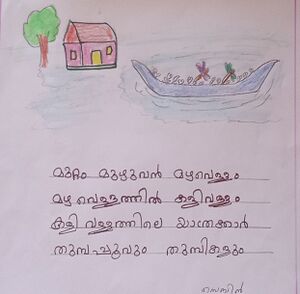 മുറ്റം മുഴുവൻ മഴവെള്ളം
മഴ വെള്ളത്തിൽ കളിവള്ളം
കളി വള്ളത്തിലെ യാത്രക്കാർ
തുമ്പപ്പൂവും തുമ്പികളും